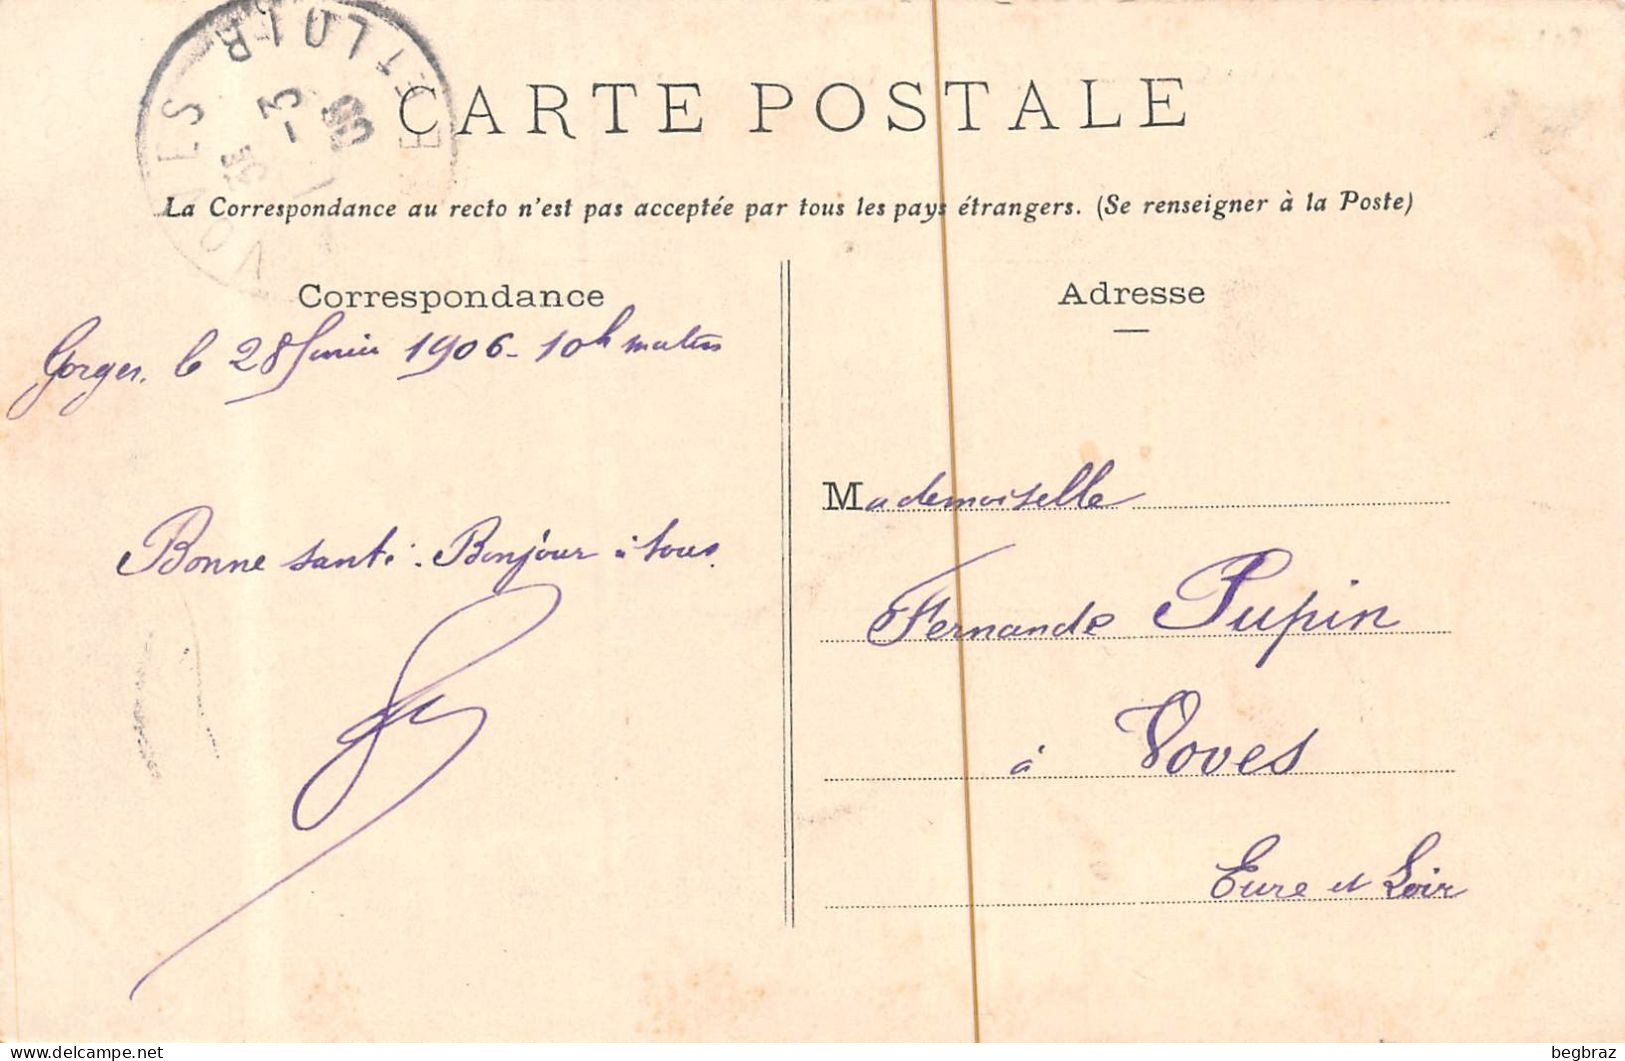 VOVES
ET LOIR
3
CARTE POSTALE
La Correspondance au recto n'est pas acceptée par tous les pays étrangers. (Se renseigner à la Poste)
Correspondance
Gorges, le 28 février 1906 - 10h matin
Bonne santé. Bonjour à tous.
Adresse
Mademoiselle
Fernande Pupin
à Voves
Eure et Loir
begbraz